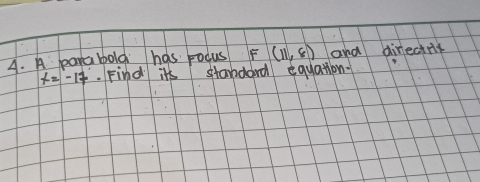 4. A parabola has Focus F (11, 8) and directrix
x = -17. Find its standard equation.